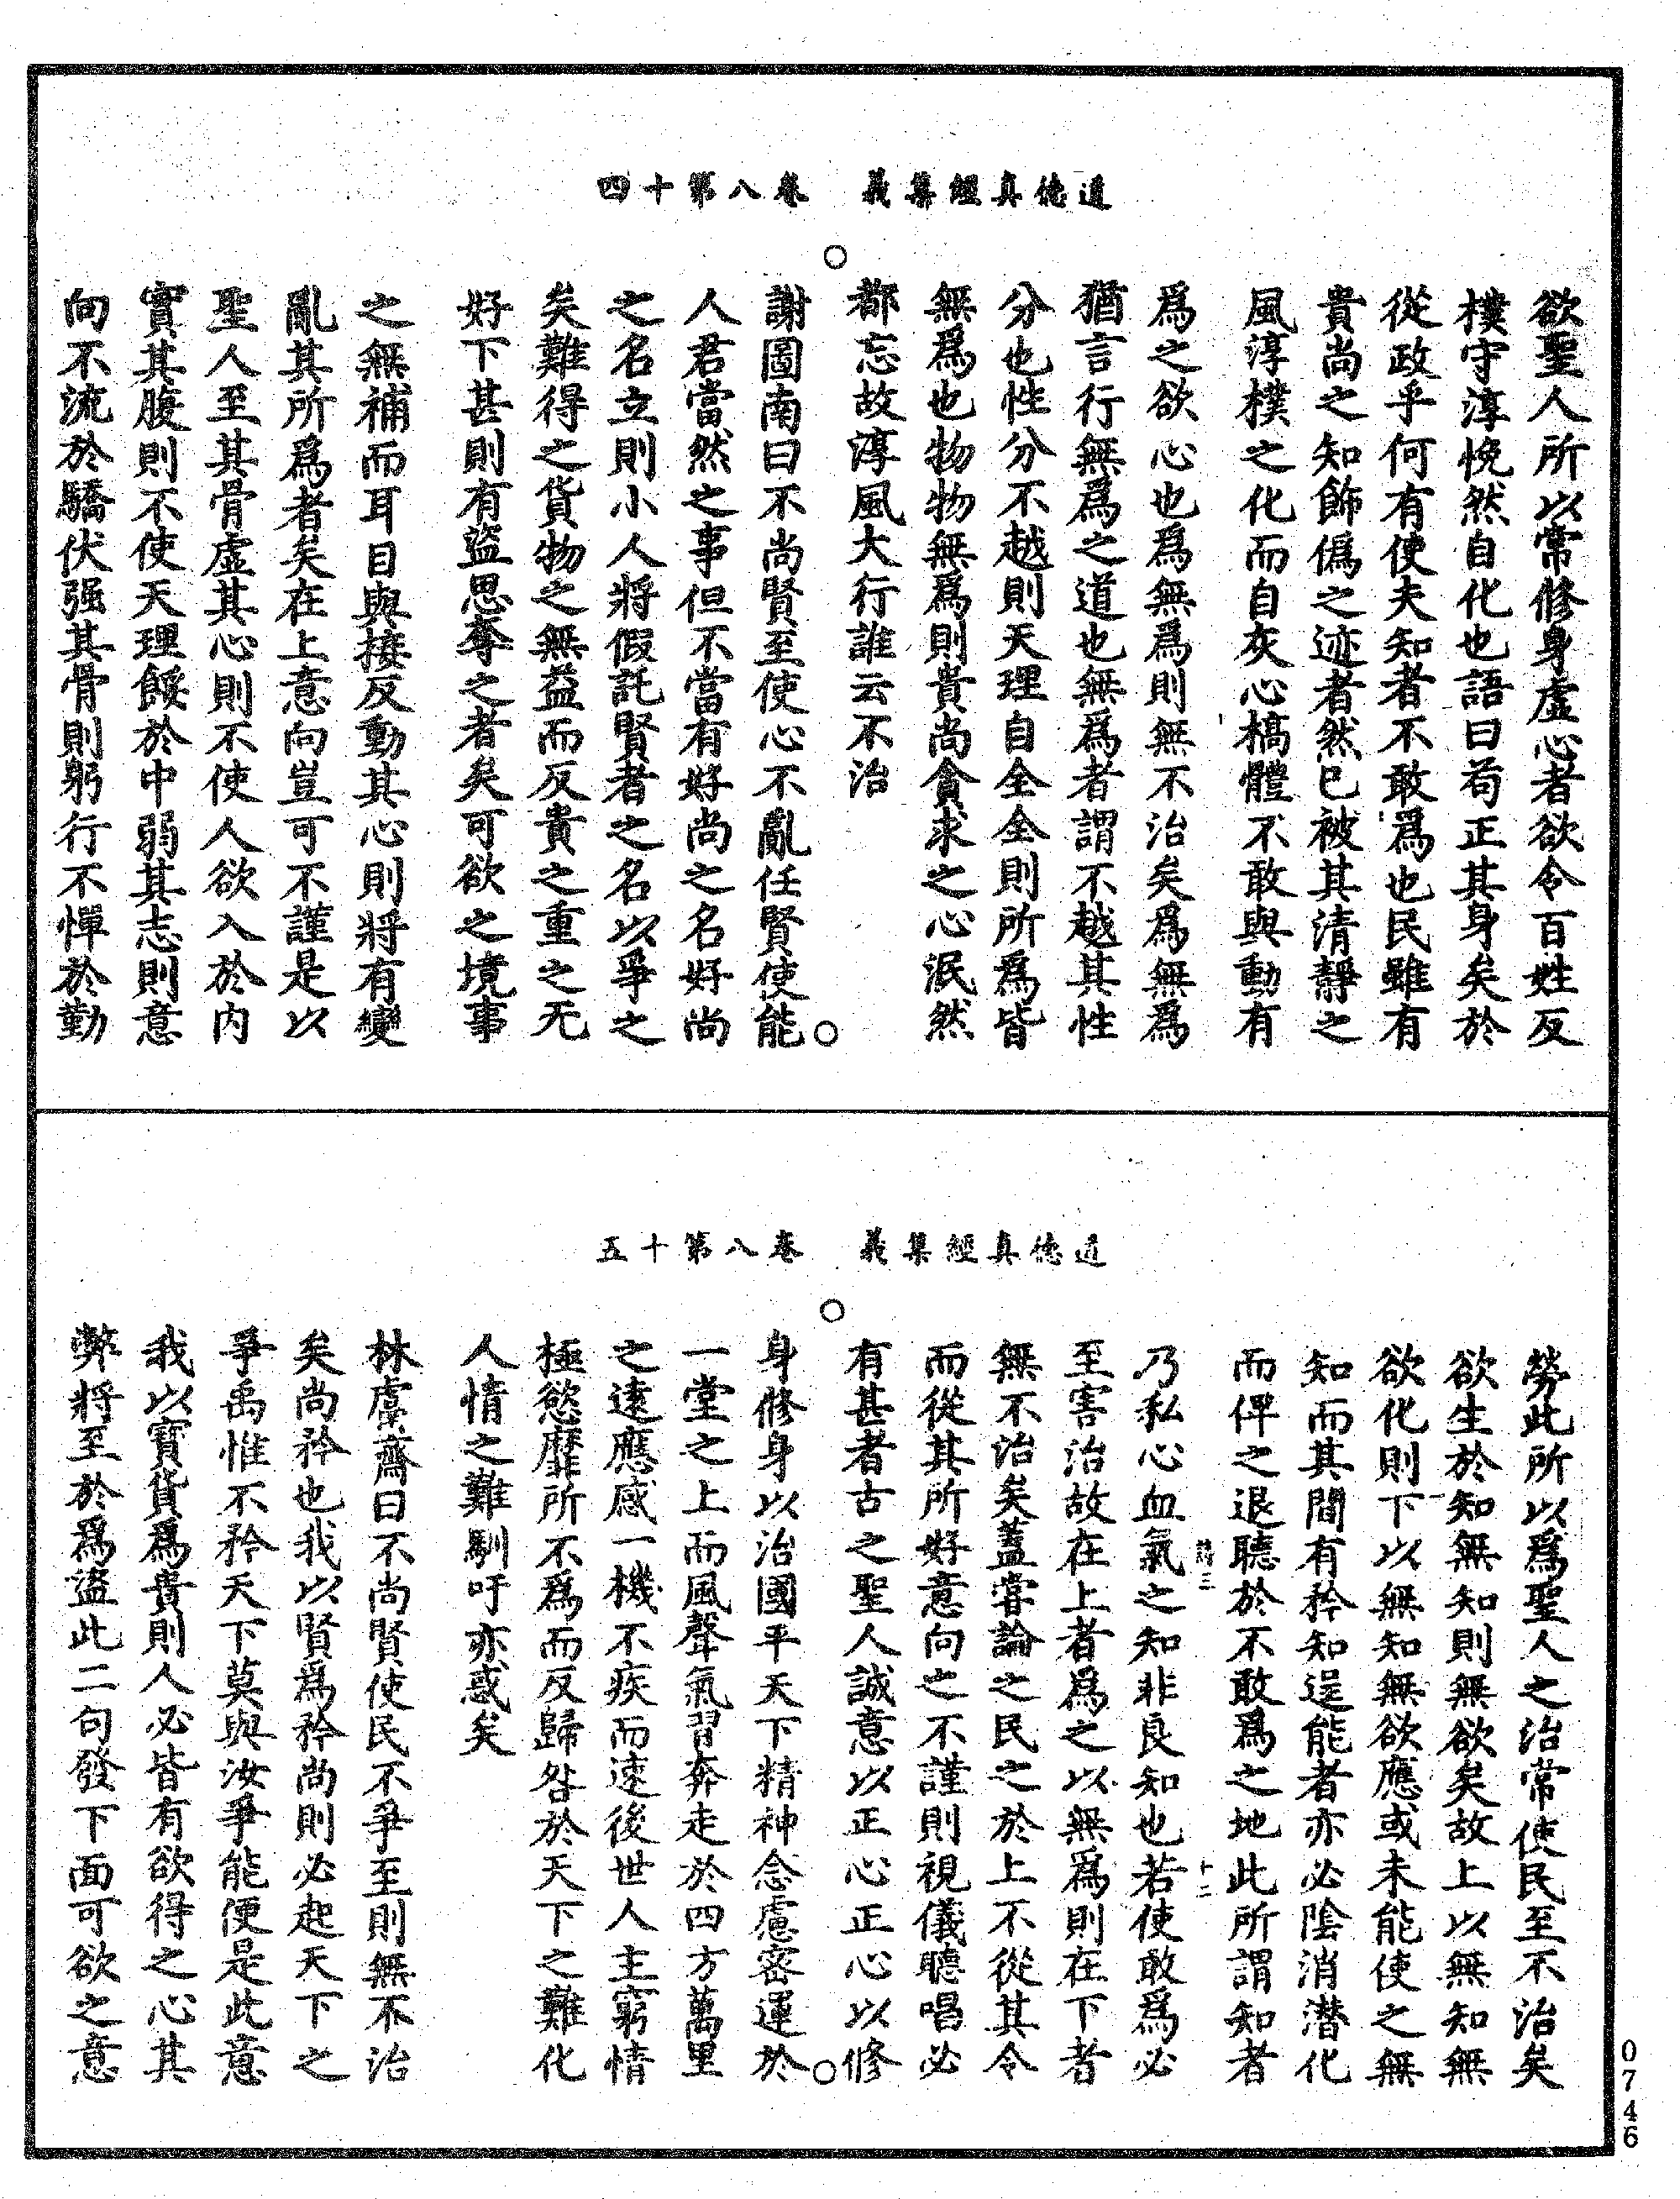 道德真經集義　卷八第十四
欲聖人所以常修身虛心者欲令百姓反
樸守淳悗然自化也語曰苟正其身矣於
從政乎何有使夫知者不敢爲也民雖有
貴尚之知飾僞之迹者然已被其清靜之
風淳樸之化而自灰心槁體不敢與動有
爲之欲心也爲無爲則無不治矣爲無爲
猶言行無爲之道也無爲者謂不越其性
分也性分不越則天理自全全則所爲皆
無爲也物物無爲則貴尚貪求之心泯然
都忘故淳風大行誰云不治
謝圖南曰不尚賢至使心不亂任賢使能
人君當然之事但不當有好尚之名好尚
之名立則小人將假託賢者之名以爭之
矣難得之貨物之無益而反貴之重之无
好下甚則有盜思奪之者矣可欲之境事
之無補而耳目與接反動其心則將有變
亂其所爲者矣在上意向豈可不謹是以
聖人至其骨虛其心則不使人欲入於內
實其腹則不使天理餒於中弱其志則意
向不流於驕伏强其骨則躬行不憚於勤
道德真經集義　卷八第十五
勞此所以爲聖人之治常使民至不治矣
欲生於知無知則無欲矣故上以無知無
欲化則下以無知無欲應或未能使之無
知而其間有矜知逞能者亦必陰消潛化
而俾之退聽於不敢爲之地此所謂知者
乃私心血氣之知非良知也若使敢爲必
至害治故在上者爲之以無爲則在下者
無不治矣蓋嘗論之民之於上不從其令
而從其所好意向之不謹則視儀聽唱必
有甚者古之聖人誠意以正心正心以修
身修身以治國平天下精神念慮密運於
一堂之上而風聲氣習奔走於四方萬里
之遠應感一機不疾而速後世人主窮情
極慾靡所不爲而反歸咎於天下之難化
人情之難馴吁亦惑矣
林虙齋曰不尚賢使民不爭至則無不治
矣尚矜也我以賢爲矜尚則必起天下之
爭禹惟不矜天下莫與汝爭能便是此意
我以寶貨爲貴則人必皆有欲得之心其
弊將至於爲盜此二句發下面可欲之意
十二
0746